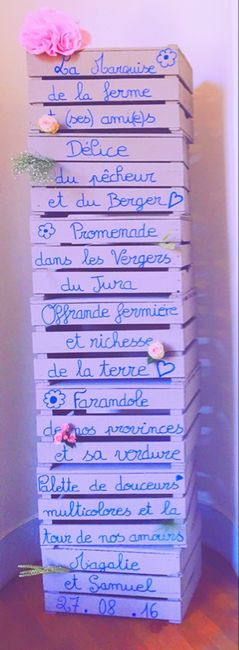 La Marquise
de la ferme
+ (ses) ami(e)s
Délice
du pêcheur
et du Berger
Promenade
dans les Vergers
du Jura
Offrande fermière
et richesse
de la terre
Farandole
de nos provinces
et sa verdure
Palette de douceurs
multicolores et la
tour de nos amours
Magalie
et Samuel
27.08.16